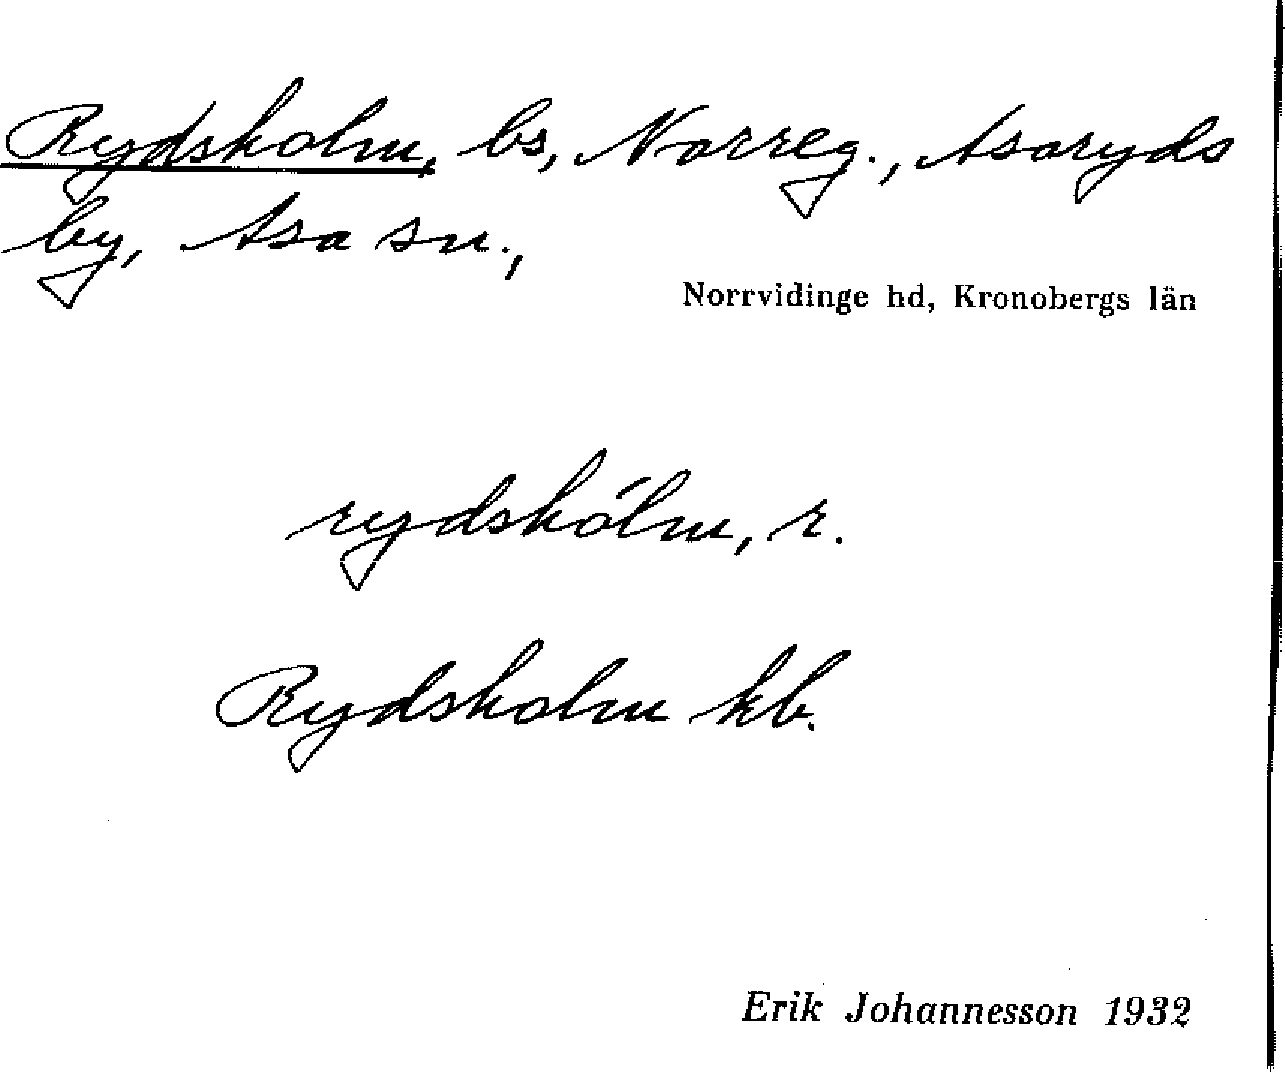 Rydsholm, bs, Norreg., Asaryds
by, Asa sn.,
Norrvidinge hd, Kronobergs län
rydshólm, r.
Rydsholm kb.
Erik Johannesson 1932